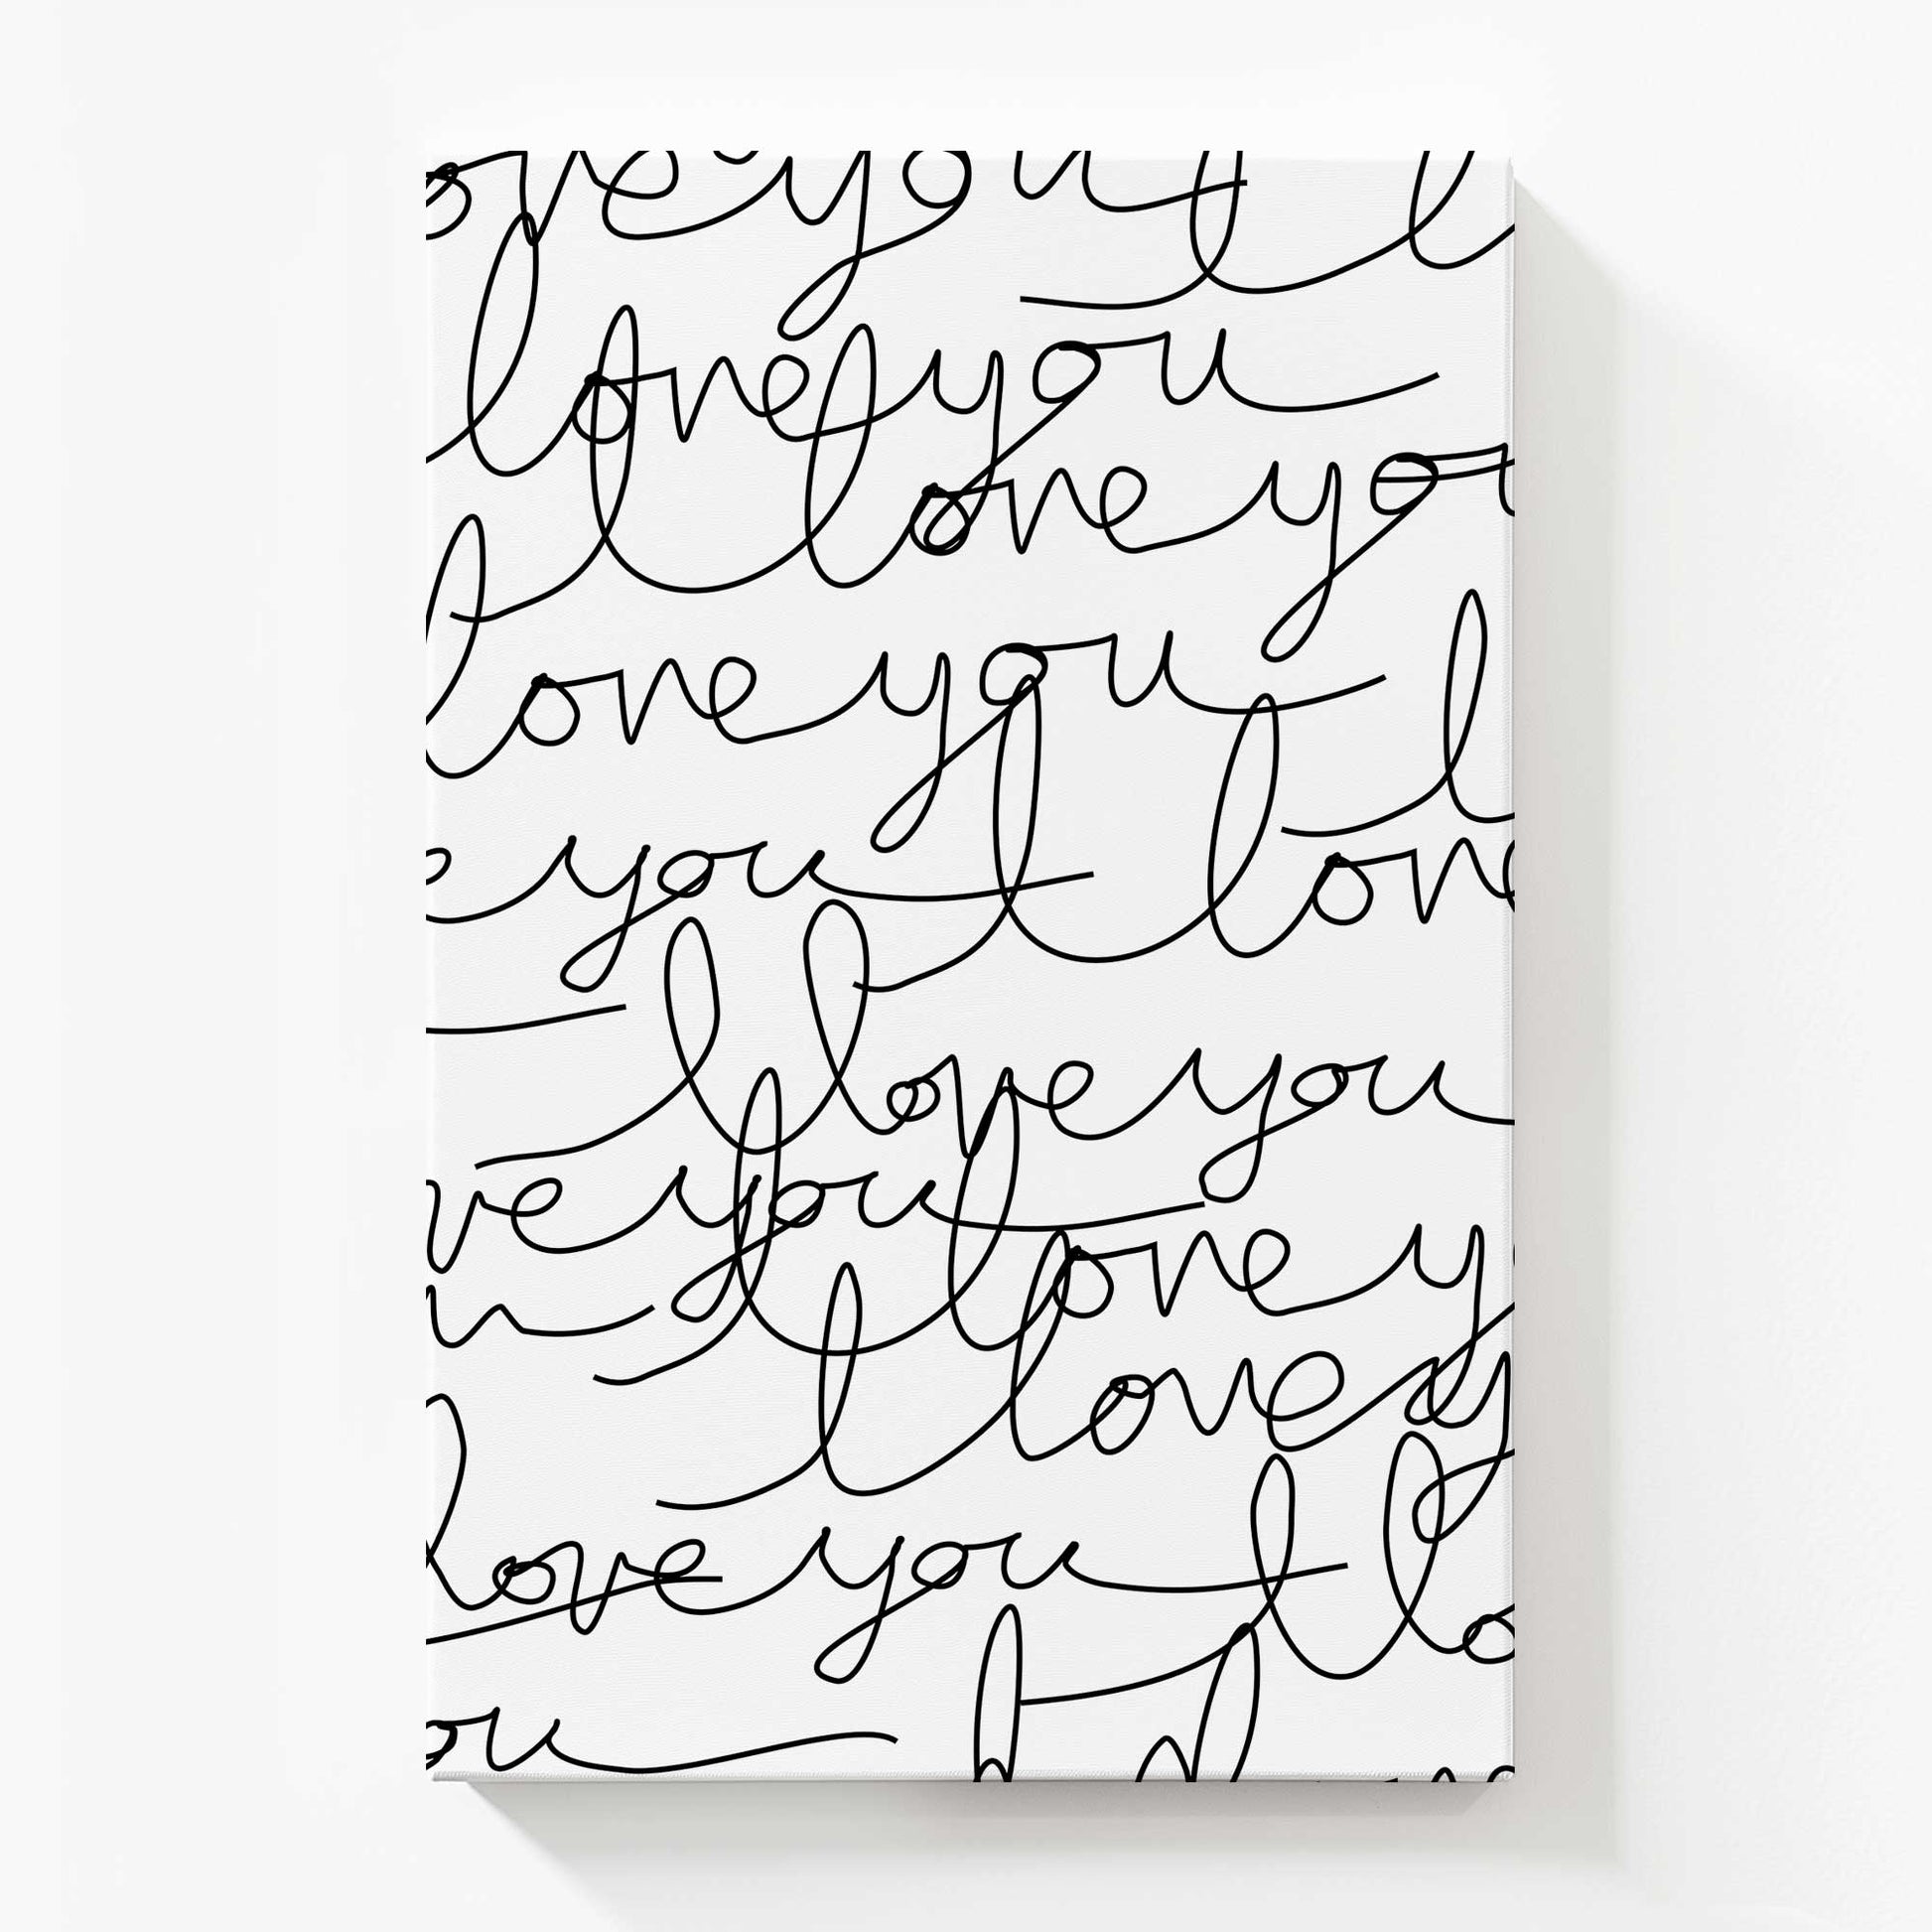 ove you I l
I love you
l love yo
love you I
e you I l love
I l love you
ve you I love y
u I love y
love you I lo
ou I